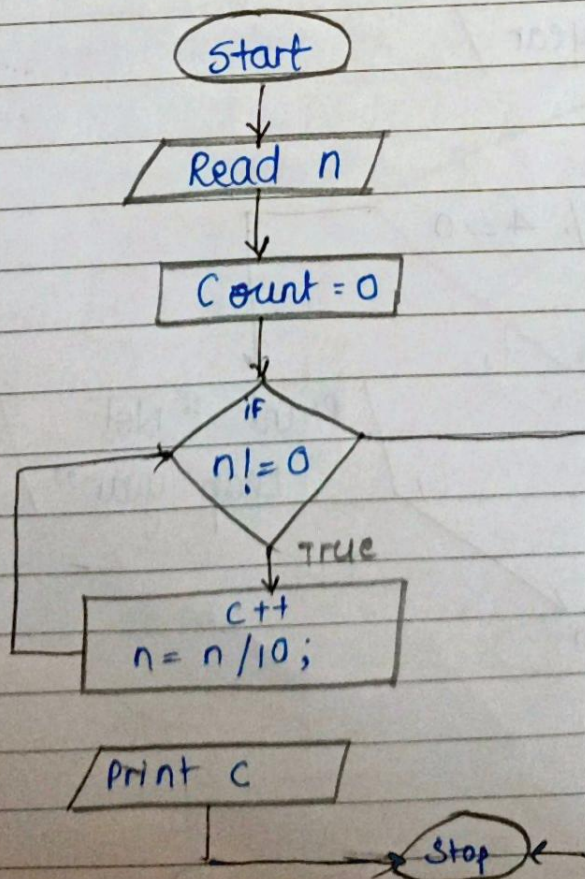 Start
Read n
Count = 0
if
n! = 0
True
C++
n = n/10;
Print C
Stop